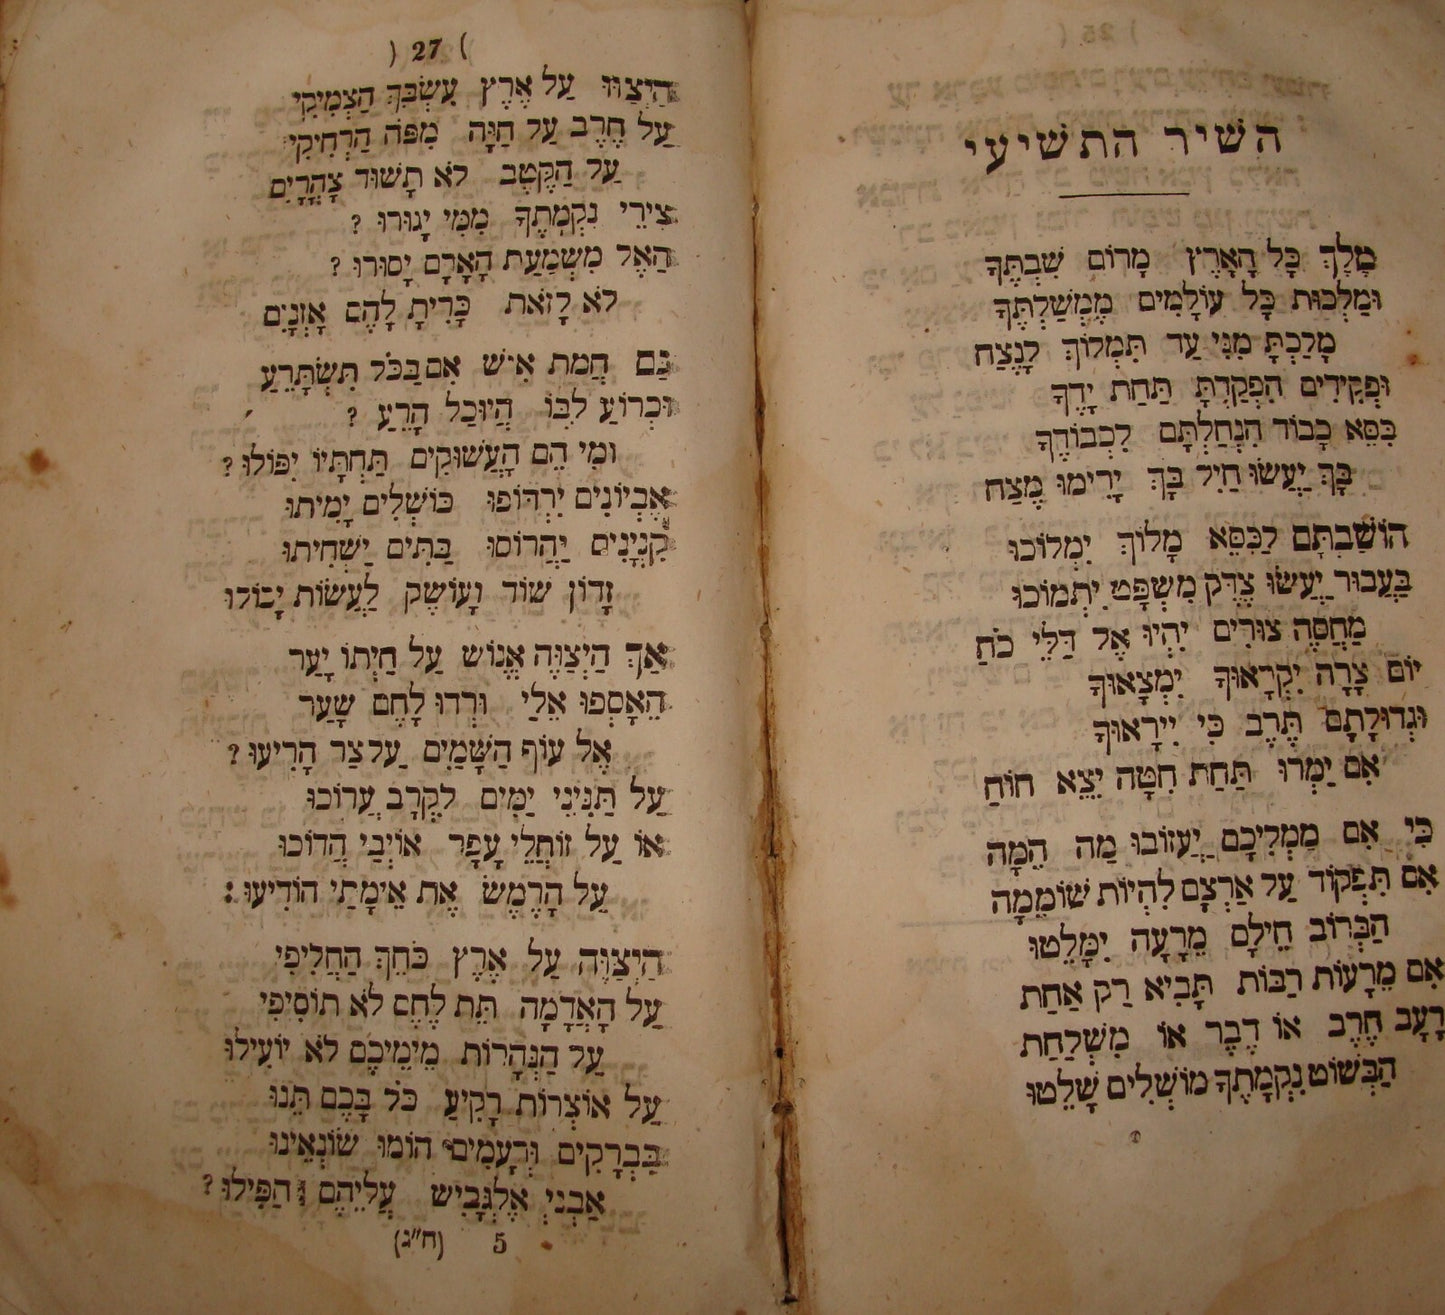 השיר התשיעי
מֶלֶךְ כָּל הָאָרֶץ מָרוֹם שִׁבְתֶּךָ
וּמַלְכוּת כָּל עוֹלָמִים מֶמְשַׁלְתֶּךָ
מָלַכְתָּ מִנִּי עַד תִּמְלוֹךְ לָנֶצַח
וּפְקִידִים הִפְקַדְתָּ תַּחַת יָדֶךָ
כִּסֵּא כָבוֹד הִנְחַלְתָּם לִכְבוֹדֶךָ
בָּךְ יַעֲשׂוּ חַיִל בָּךְ יָרִימוּ מֶצַח
הוֹשַׁבְתָּם לַכִּסֵּא מָלוֹךְ יִמְלוֹכוּ
בַּעֲבוּר יַעֲשׂוּ צֶדֶק מִשְׁפָּט יִתְמוֹכוּ
מַחֲסֶה צוּרִים יִהְיוּ אֶל דַּלֵּי כֹחַ
יוֹם צָרָה יִקְרָאוּךָ יִמְצָאוּךָ
וּגְדוּלָתָם תֶּרֶב כִּי יִירָאוּךָ
אִם יַמְרוּ תַּחַת חִטָּה יֵצֵא חוֹחַ
כִּי אִם מַמְלִיכָם יַעֲזוֹבוּ מַה הֵמָּה
אִם תִּפְקוֹד עַל אַרְצָם לִהְיוֹת שׁוֹמֵמָה
הַבְּרוֹב חֵילָם מֵרָעָה יִמָּלֵטוּ
אִם מֵרָעוֹת רַבּוֹת תָּבִיא רַק אַחַת
רָעָב חֶרֶב אוֹ דֶבֶר אוֹ מִשְׁלַחַת
הַבְּשׁוֹט נִקְמָתֶךָ מוֹשְׁלִים שָׁלֵטוּ
( 27 )
הַיְצַוּוּ עַל אֶרֶץ עֶשְׂבֵּךְ הַצְמִיקִי
עַל חֶרֶב עַל הַוָּה מִפֹּה הַרְחִיקִי
עַל הַקֶּטֶב לֹא תָשׁוּד צָהֳרָיִם
צִירֵי נִקְמָתֶךָ מִמִּי יָגוּרוּ ?
הַאֶל מִשְׁמַעַת הָאָדָם יָסוּרוּ ?
לֹא לָזֹאת כָּרִיתָ לָהֶם אָזְנָיִם
גַּם חֲמַת אִישׁ אִם בַּכֹּל תִּשְׂתָּרֵעַ
וּכְרוֹעַ לִבּוֹ הֲיוּכַל הָרֵעַ ?
וּמִי הֵם הָעֲשׁוּקִים תַּחְתָּיו יִפּוֹלוּ ?
אֶבְיוֹנִים יִרְדּוֹפוּ כּוֹשְׁלִים יָמִיתוּ
קִנְיָנִים יַהֲרוֹסוּ בַּתִּים יַשְׁחִיתוּ
זָדוֹן שׁוֹד וָעוֹשֶׁק לַעֲשׂוֹת יָכוֹלוּ
אַךְ הַיְצַוֶּה אֱנוֹשׁ עַל חַיְתוֹ יָעַר
הֵאָסְפוּ אֵלַי וּרְדוּ לָחֶם שָׁעַר
אֶל עוֹף הַשָּׁמַיִם עַל צַר הָרִיעוּ ?
עַל תַּנִּינֵי יַמִּים לִקְרָב עֲרוֹכוּ
אוֹ עַל זוֹחֲלֵי עָפָר אוֹיְבַי הֲדוֹכוּ
עַל הָרֶמֶשׂ אֶת אֵימָתַי הוֹדִיעוּ :
הַיְצַוֶּה עַל אֶרֶץ כֹּחֵךְ הַחֲלִיפִי
עַל הָאֲדָמָה תֵּת לֶחֶם לֹא תוֹסִיפִי
עַל הַנְּהָרוֹת מֵימֵיכֶם לֹא יוֹעִילוּ
עַל אוֹצְרוֹת רָקִיעַ כֹּל בָּכֶם תֵּנוּ
בִּבְרָקִים וּרְעָמִים הוֹמוּ שׂוֹנְאֵינוּ
אַבְנֵי אֶלְגָּבִישׁ עֲלֵיהֶם הַפִּילוּ ?
5 (ח"ג)